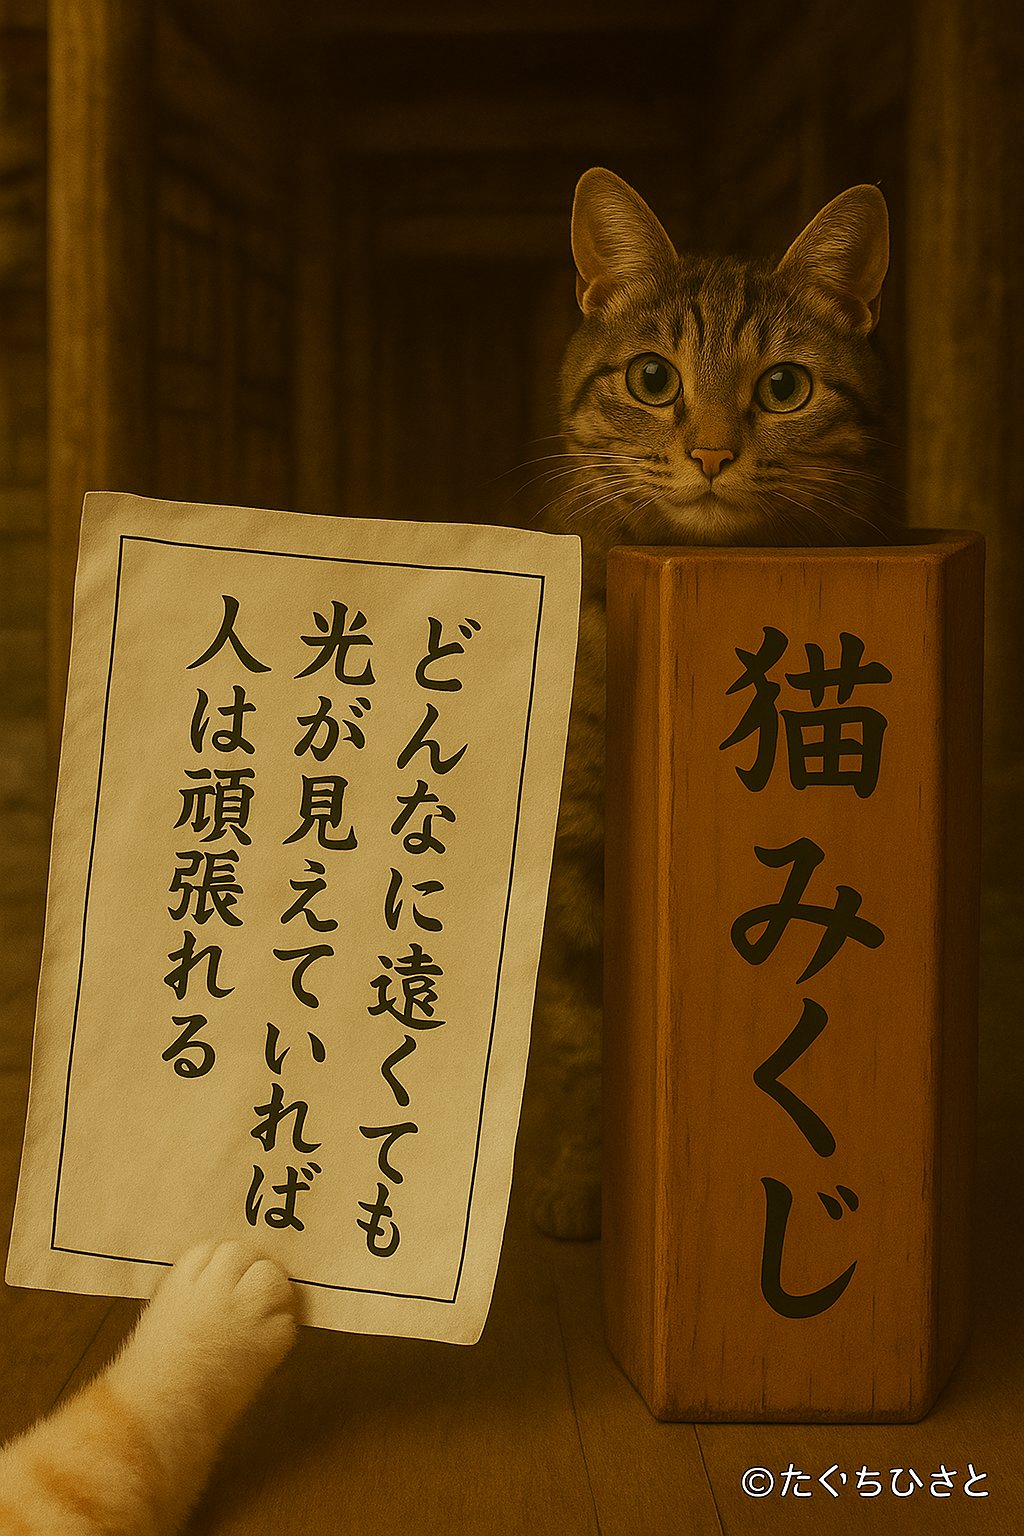 どんなに遠くても
光が見えていれば
人は頑張れる
猫みくじ
©たぐちひさと